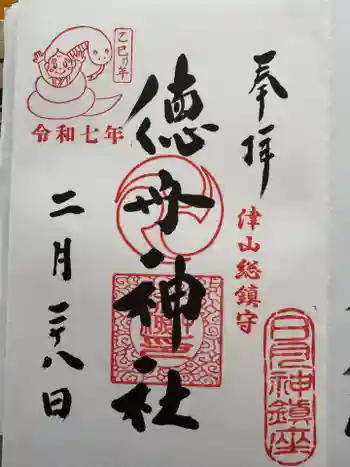 奉拝
津山総鎮守
日月神鎮座
徳守神社
乙巳の年
令和七年
二月二十八日